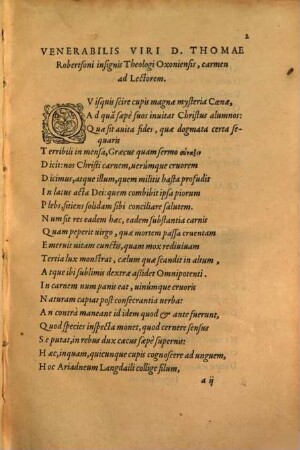 2
VENERABILIS VIRI D. THOMAE
Robertsoni insignis Theologi Oxoniensis, carmen
ad Lectorem.
QVisquis scire cupis magnæ mysteria Cœnæ,
Ad quã sæpè suos inuitat Christus alumnos:
Quæ sit auita fides, quæ dogmata certa se-
quaris
Terribili in mensa, Græcus quam sermo
Dicit: nos Christi carnem, uerúmque cruorem
Dicimus, atque illum, quem militis hasta profudit
In latus acta Dei: quem combibit ipsa piorum
Plebs, sitiens solidam sibi conciliare salutem.
Num sit res eadem hæc, eadem substantia carnis
Quam peperit uirgo, quæ mortem passa cruentam
Emeruit uitam cunctis, quam mox rediuiuam
Tertia lux monstrat, cælum quæ scandit in altum,
Atque ibi sublimis dextræ assidet Omnipotenti.
In carnem num panis eat, uinúmque cruoris
Naturam captas post consecrantia uerba:
An contrà maneant id idem quod & ante fuerunt,
Quod species inspecta monet, quod cernere sensus
Se putat, in rebus dux cæcus sæpè supernis:
Hæc, inquam, quicunque cupis cognoscere ad unguem,
Hoc Ariadneum Langdaili collige filum,
a ij